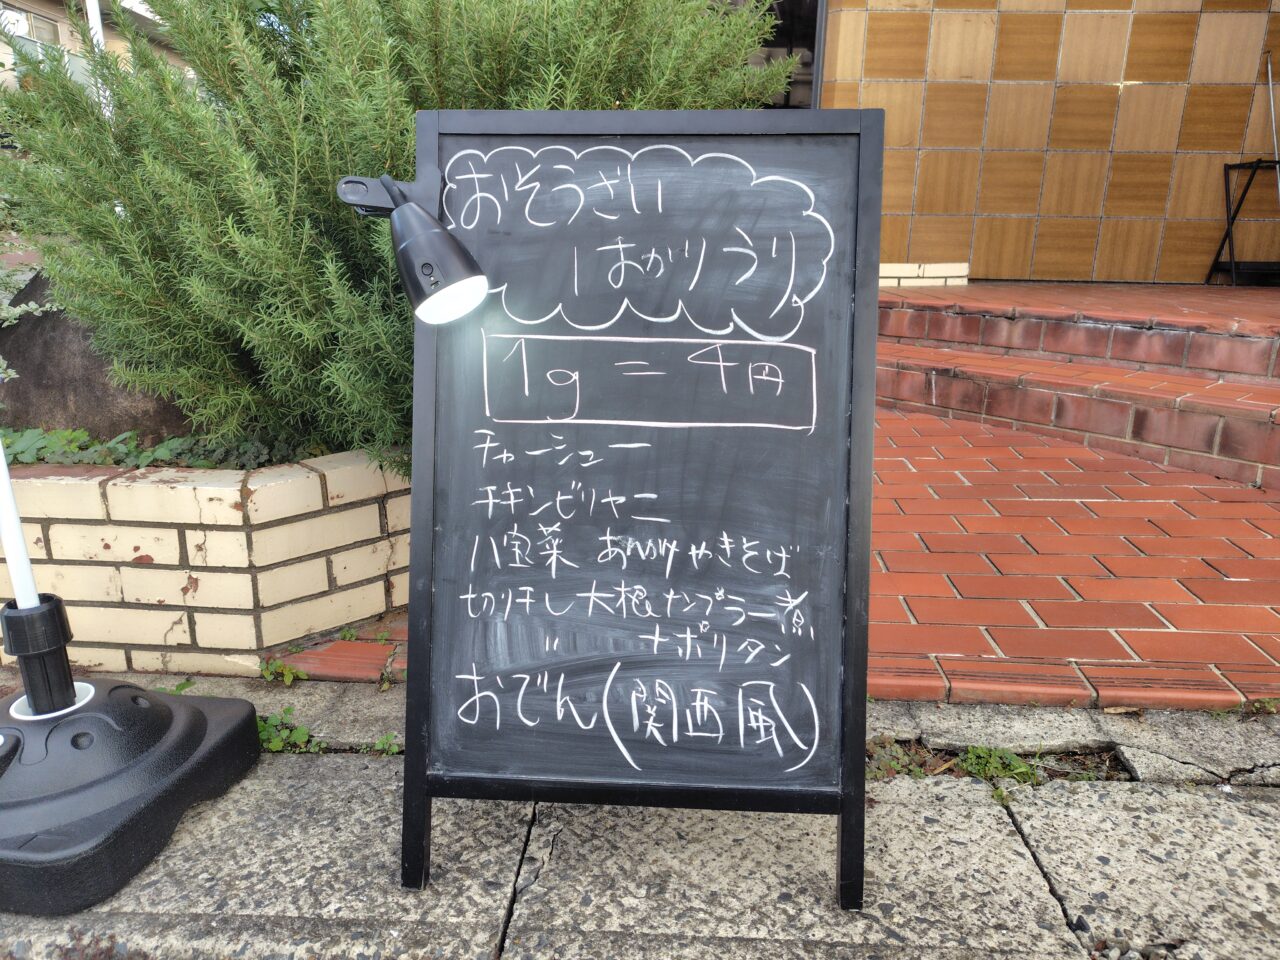 おそうざい
はかりうり
1g = 4円
チャーシュー
チキンビリヤニ
八宝菜 あんかけやきそば
切り干し大根ナンプラー煮
〃 ナポリタン
おでん(関西風)